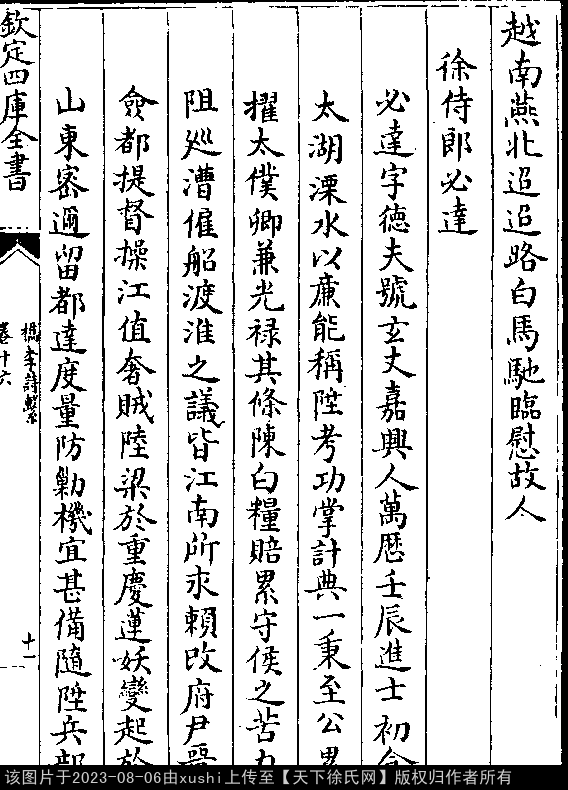 越南燕北迢迢路白馬馳臨慰故人
徐侍郎必達
必達字徳夫號玄丈嘉興人萬厯壬辰進士初
太湖溧水以亷能稱陞考功掌計典一秉至公
擢太僕卿兼光禄其條陳白糧賠累守候之苦
阻廵漕催船渡淮之議皆江南所永頼改府尹
僉都提督操江值奢賊陸梁於重慶蓮妖變起於
山東密邇留都達度量防勦機宜甚備隨陞兵部
欽定四庫全書
檇李詩繫
卷十六
十一
该图片于2023-08-06由xushi上传至【天下徐氏网】版权归作者所有